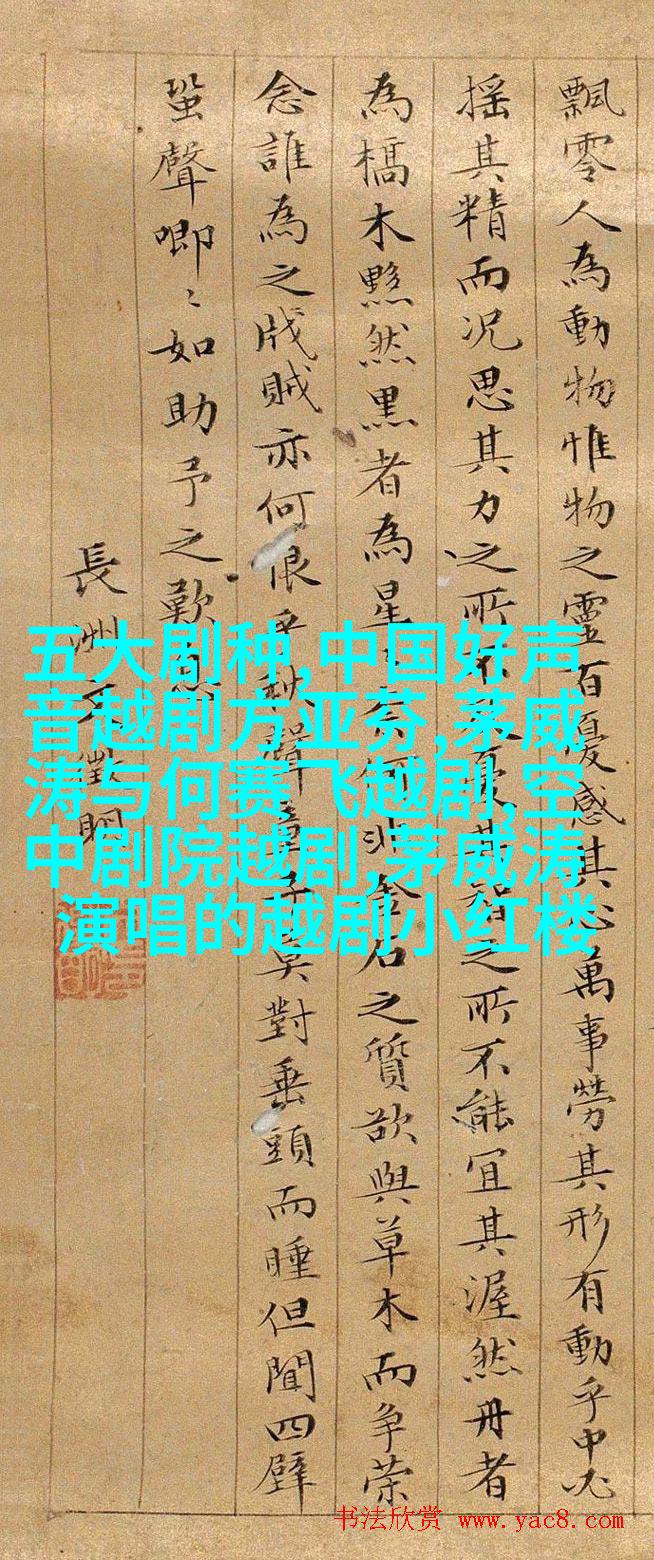 飄零人為動物惟物之靈百憂感其心萬事勞其形有動乎中必
摇其精而况思其力之所不憂其智之所不能宜其渥然丹者
為槁木黟然黒者為星奈何非金石之質欲與草木而争荣
念誰為之戕賊亦何恨乎秋聲童子莫對垂頭而睡但聞四壁
蛩聲唧〻如助予之歎息
長洲文徵明
五大剧种,中国好声
音越剧方亚芬,茅威
涛与何赛飞越剧,空
中剧院越剧,茅威涛
演唱的越剧小红楼
书法欣赏 www.yac8.com